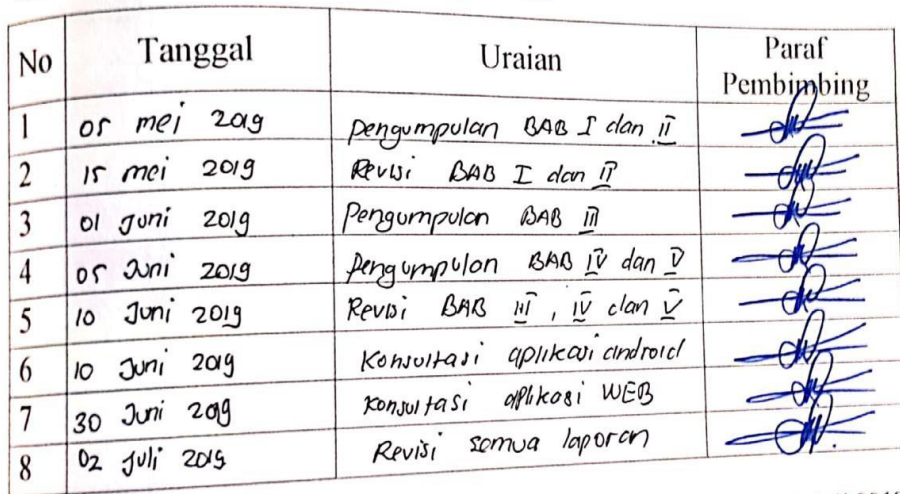 No Tanggal Uraian Paraf Pembimbing
1 05 mei 2019 pengumpulan BAB I dan II
2 15 mei 2019 Revisi BAB I dan II
3 01 Juni 2019 Pengumpulan BAB III
4 05 Juni 2019 Pengumpulan BAB IV dan V
5 10 Juni 2019 Revisi BAB III, IV dan V
6 10 Juni 2019 Konsultasi aplikasi android
7 30 Juni 2019 Konsultasi aplikasi WEB
8 02 Juli 2019 Revisi semua laporan